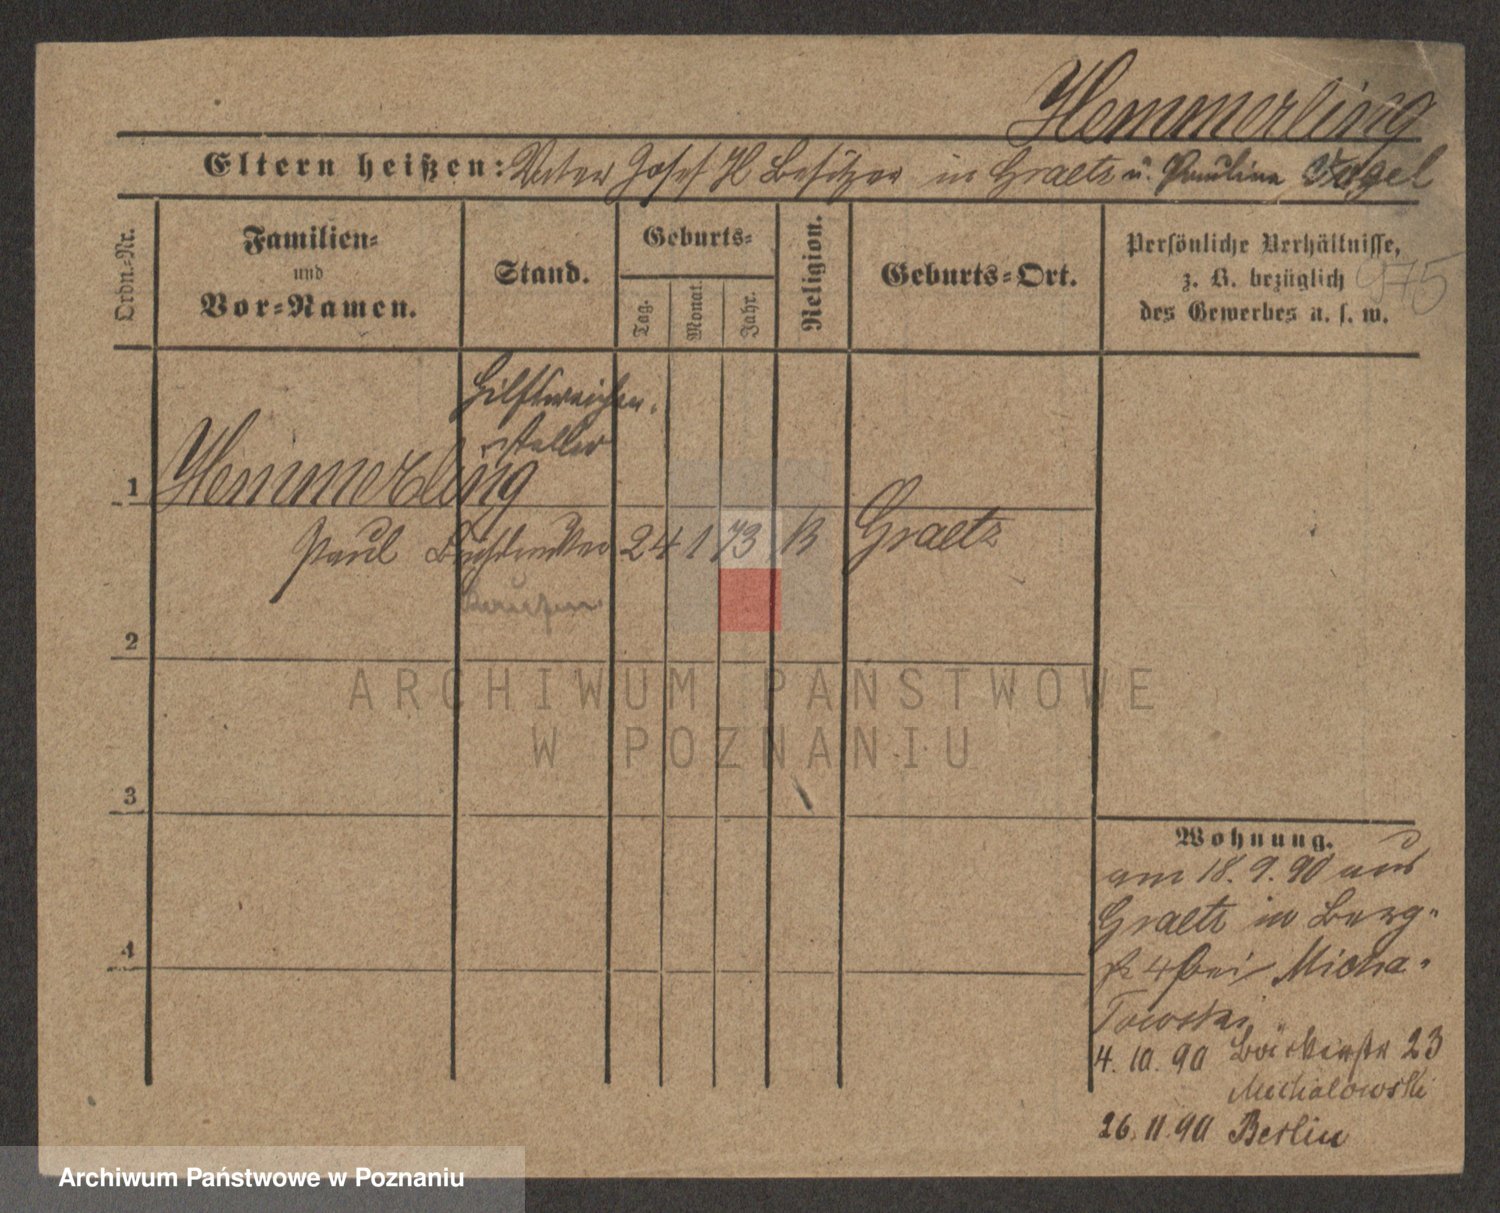 Hemmerling
Eltern heißen: Vater Josef H Besitzer in Graetz u. Paulina Vogel
Ordn.-Nr.
Familien-
und
Vor-Namen.
Stand.
Geburts-
Tag.
Monat.
Jahr.
Religion.
Geburts-Ort.
Persönliche Verhältnisse,
z. B. bezüglich
des Gewerbes u. s. w.
975
Hilfsweichen-
steller
1 Hemmerling
Paul Buchdrucker 24 1 73 K Graetz
2
3
4
Wohnung.
am 18. 9. 90 aus
Graetz in Berg-
str 4 bei Micha-
lowski
4. 10. 90 Bäckerstr 23
Michalowski
26. 11. 90 Berlin
ARCHIWUM PAŃSTWOWE
W POZNANIU
Archiwum Państwowe w Poznaniu